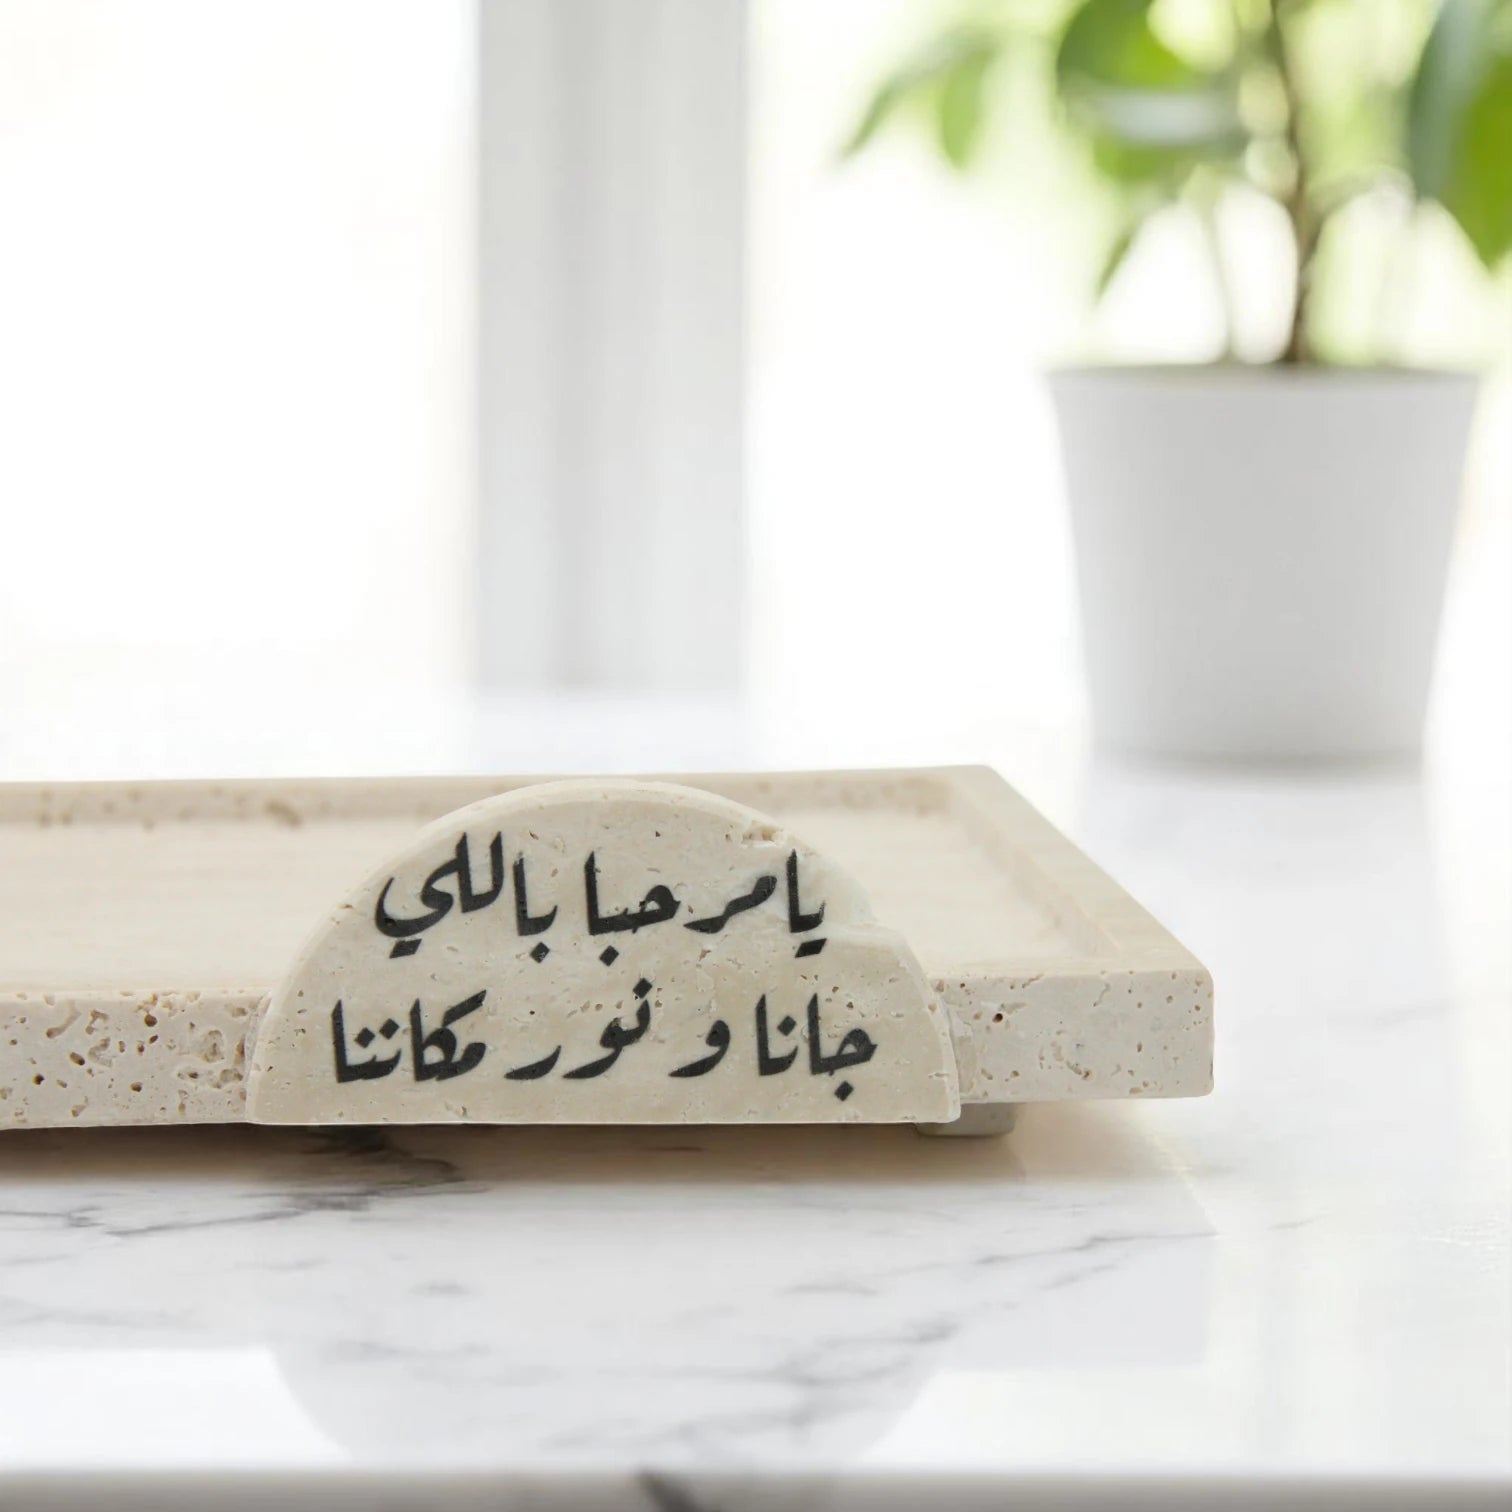 يامرحبا باللي
جانا و نور مكاننا